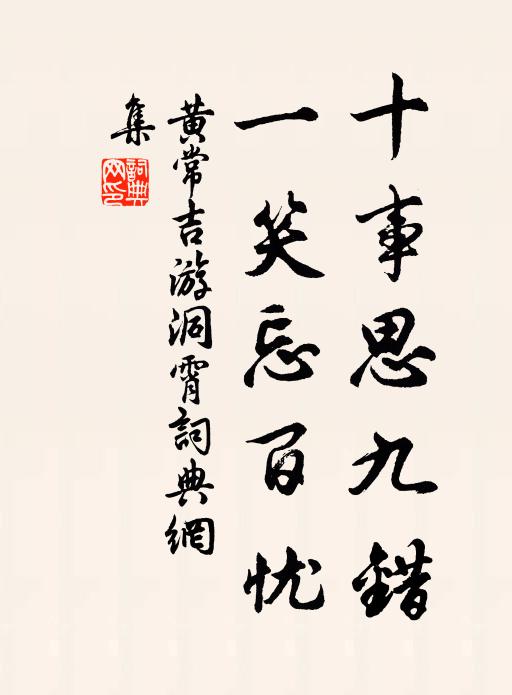 十事思九錯
一笑忘百忧
黄常吉游洞霄詞典網
集
詞典网印